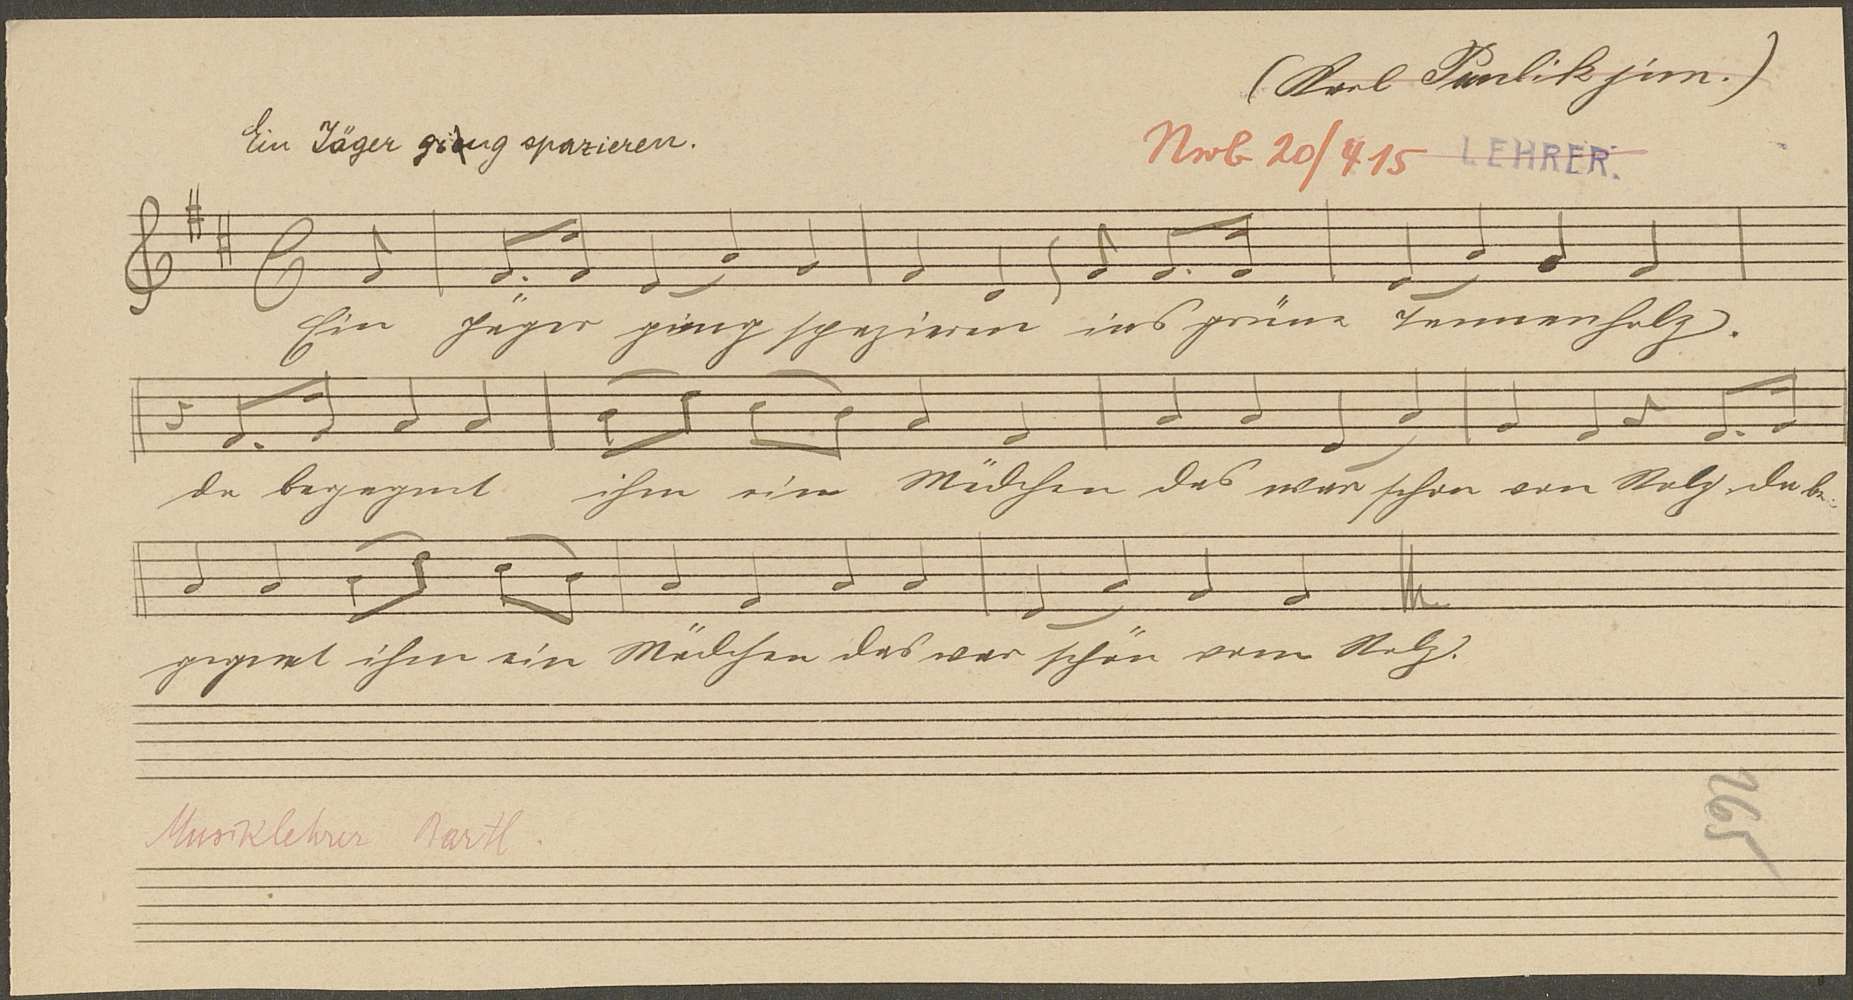 (Karl Paulik jun.)
Ein Jäger ging spazieren.
Nwb 20/4 15 LEHRER.
Ein Jäger ging spazieren ins grüne Tannenholz.
da begegnet ihm ein Mädchen das war schon von Stolz. da be-
gegnet ihm ein Mädchen das war schön vom Stolz.
Musiklehrer Bartl.
265